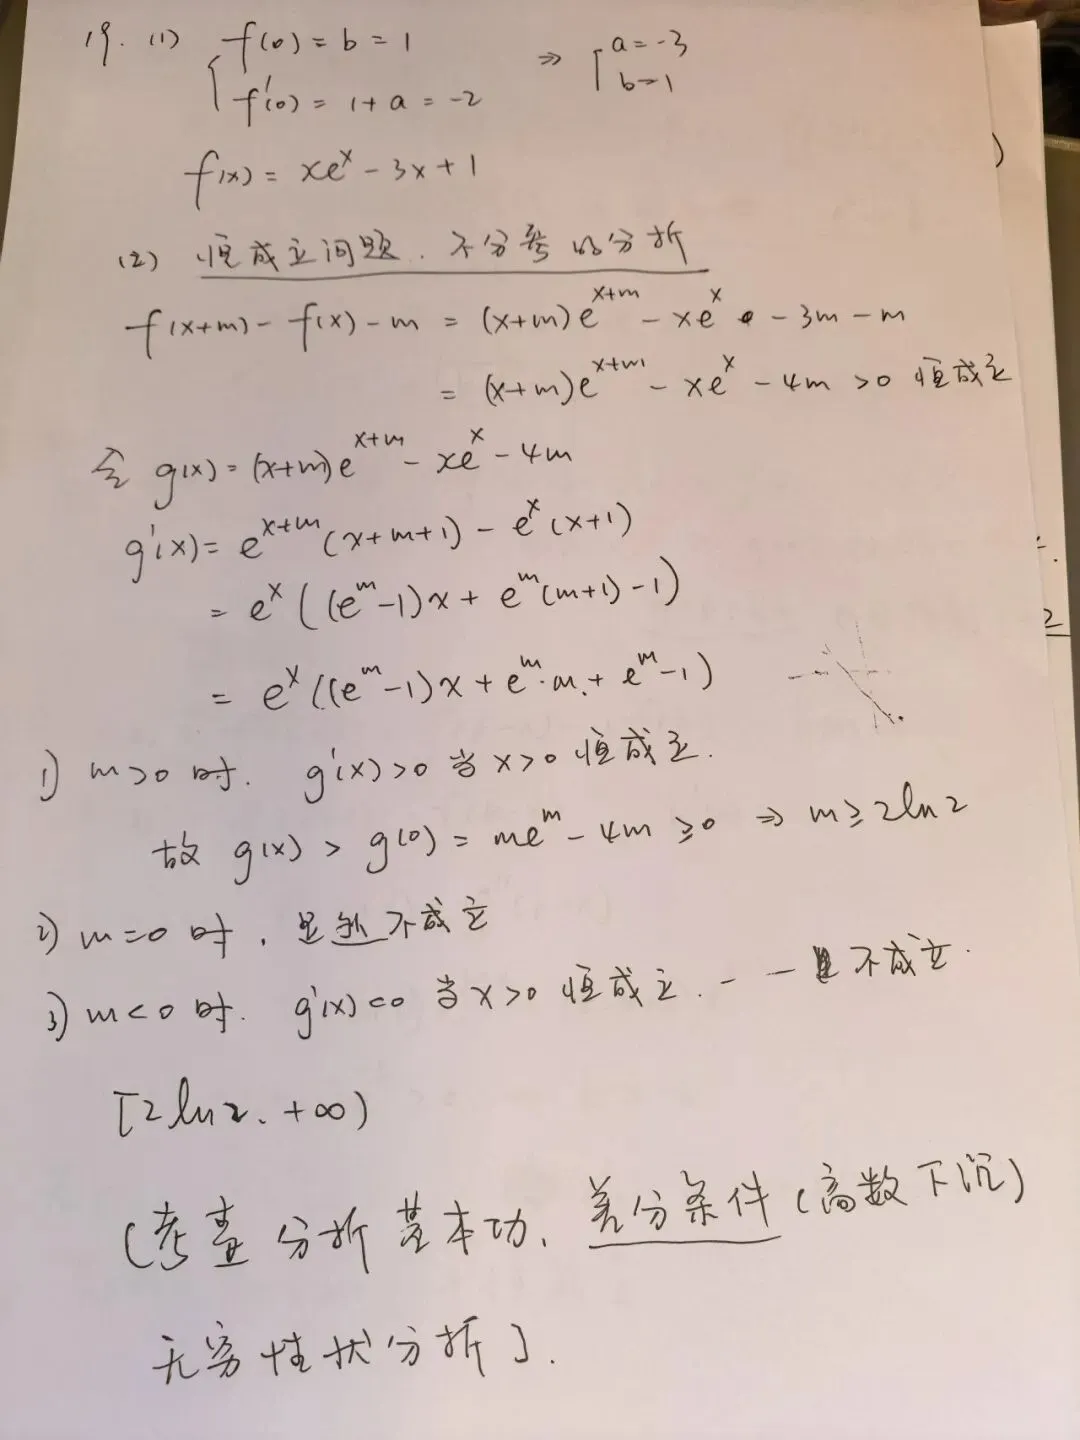 19. (1) f(0) = b = 1 ⇒ a = -3
f'(0) = 1 + a = -2 b = 1
f(x) = xe^x - 3x + 1
(2) 恒成立问题. 不分离的分析
f(x+m) - f(x) - m = (x+m)e^{x+m} - xe^x - 3m - m
= (x+m)e^{x+m} - xe^x - 4m > 0 恒成立
令 g(x) = (x+m)e^{x+m} - xe^x - 4m
g'(x) = e^{x+m}(x+m+1) - e^x(x+1)
= e^x((e^m-1)x + e^m(m+1) - 1)
= e^x((e^m-1)x + e^m·m + e^m - 1)
1) m>0 时. g'(x)>0 当 x>0 恒成立.
故 g(x) > g(0) = me^m - 4m ≥ 0 ⇒ m ≥ 2ln2
2) m=0 时, 显然不成立
3) m<0 时. g'(x)<0 当 x>0 恒成立. - - 不成立.
[2ln2, +∞)
(考查分析基本功、差分条件(高数下沉)
无穷性状分析).